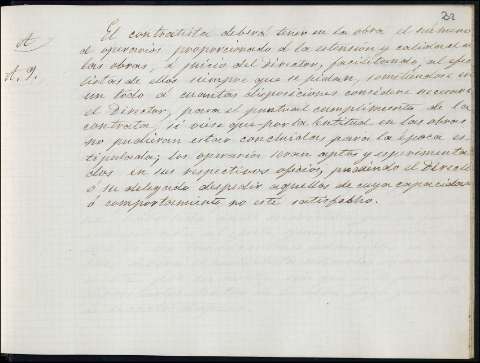 202
A
A. 9.
El contratista deberá tener en la obra el número
de operarios proporcionado á la estension y calidad de
las obras, á juicio del Director, facilitando, al efec
listas de ellos siempre que se pidan, sometiéndose en
un todo á cuantas disposiciones considere necesari
el Director, para el puntual cumplimiento de la
contrata, si viese que por la lentitud en las obras
no pudieran estar concluidas para la época es-
tipulada; los operarios serán aptos y esperimenta-
dos en sus respectivos oficios, pudiendo el Direct
o su delegado despedir aquellos de cuya capacidad
ó comportamiento no esté satisfecho.